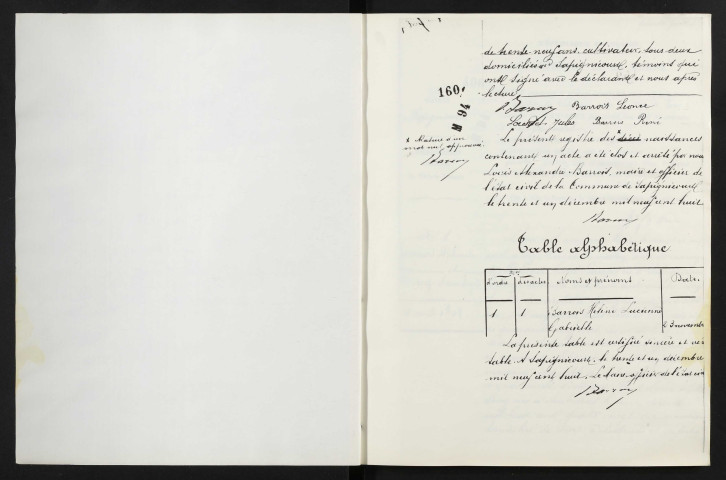 de trente neuf ans, cultivateur, tous deux
domiciliés à Sapignicourt, témoins qui
ont signé avec le déclarant et nous après
lecture
160
M 94
Barrois Léonce
Jules Barrois René
Le présent registre des décès naissances
contenant un acte a été clos et arrêté par nous
Louis Alexandre Barrois, maire et officier de
l'état civil de la Commune de Sapignicourt
le trente et un décembre mil neuf cent huit
Barrois
Table alphabétique
Noms et prénoms
Dates
1 1 Barrois Hélène Lucienne
Gabrielle 23 novembre
La présente table est certifiée sincère et véri
table. A Sapignicourt, le trente et un décembre
mil neuf cent huit. Le Maire officier de l'état civil
Barrois